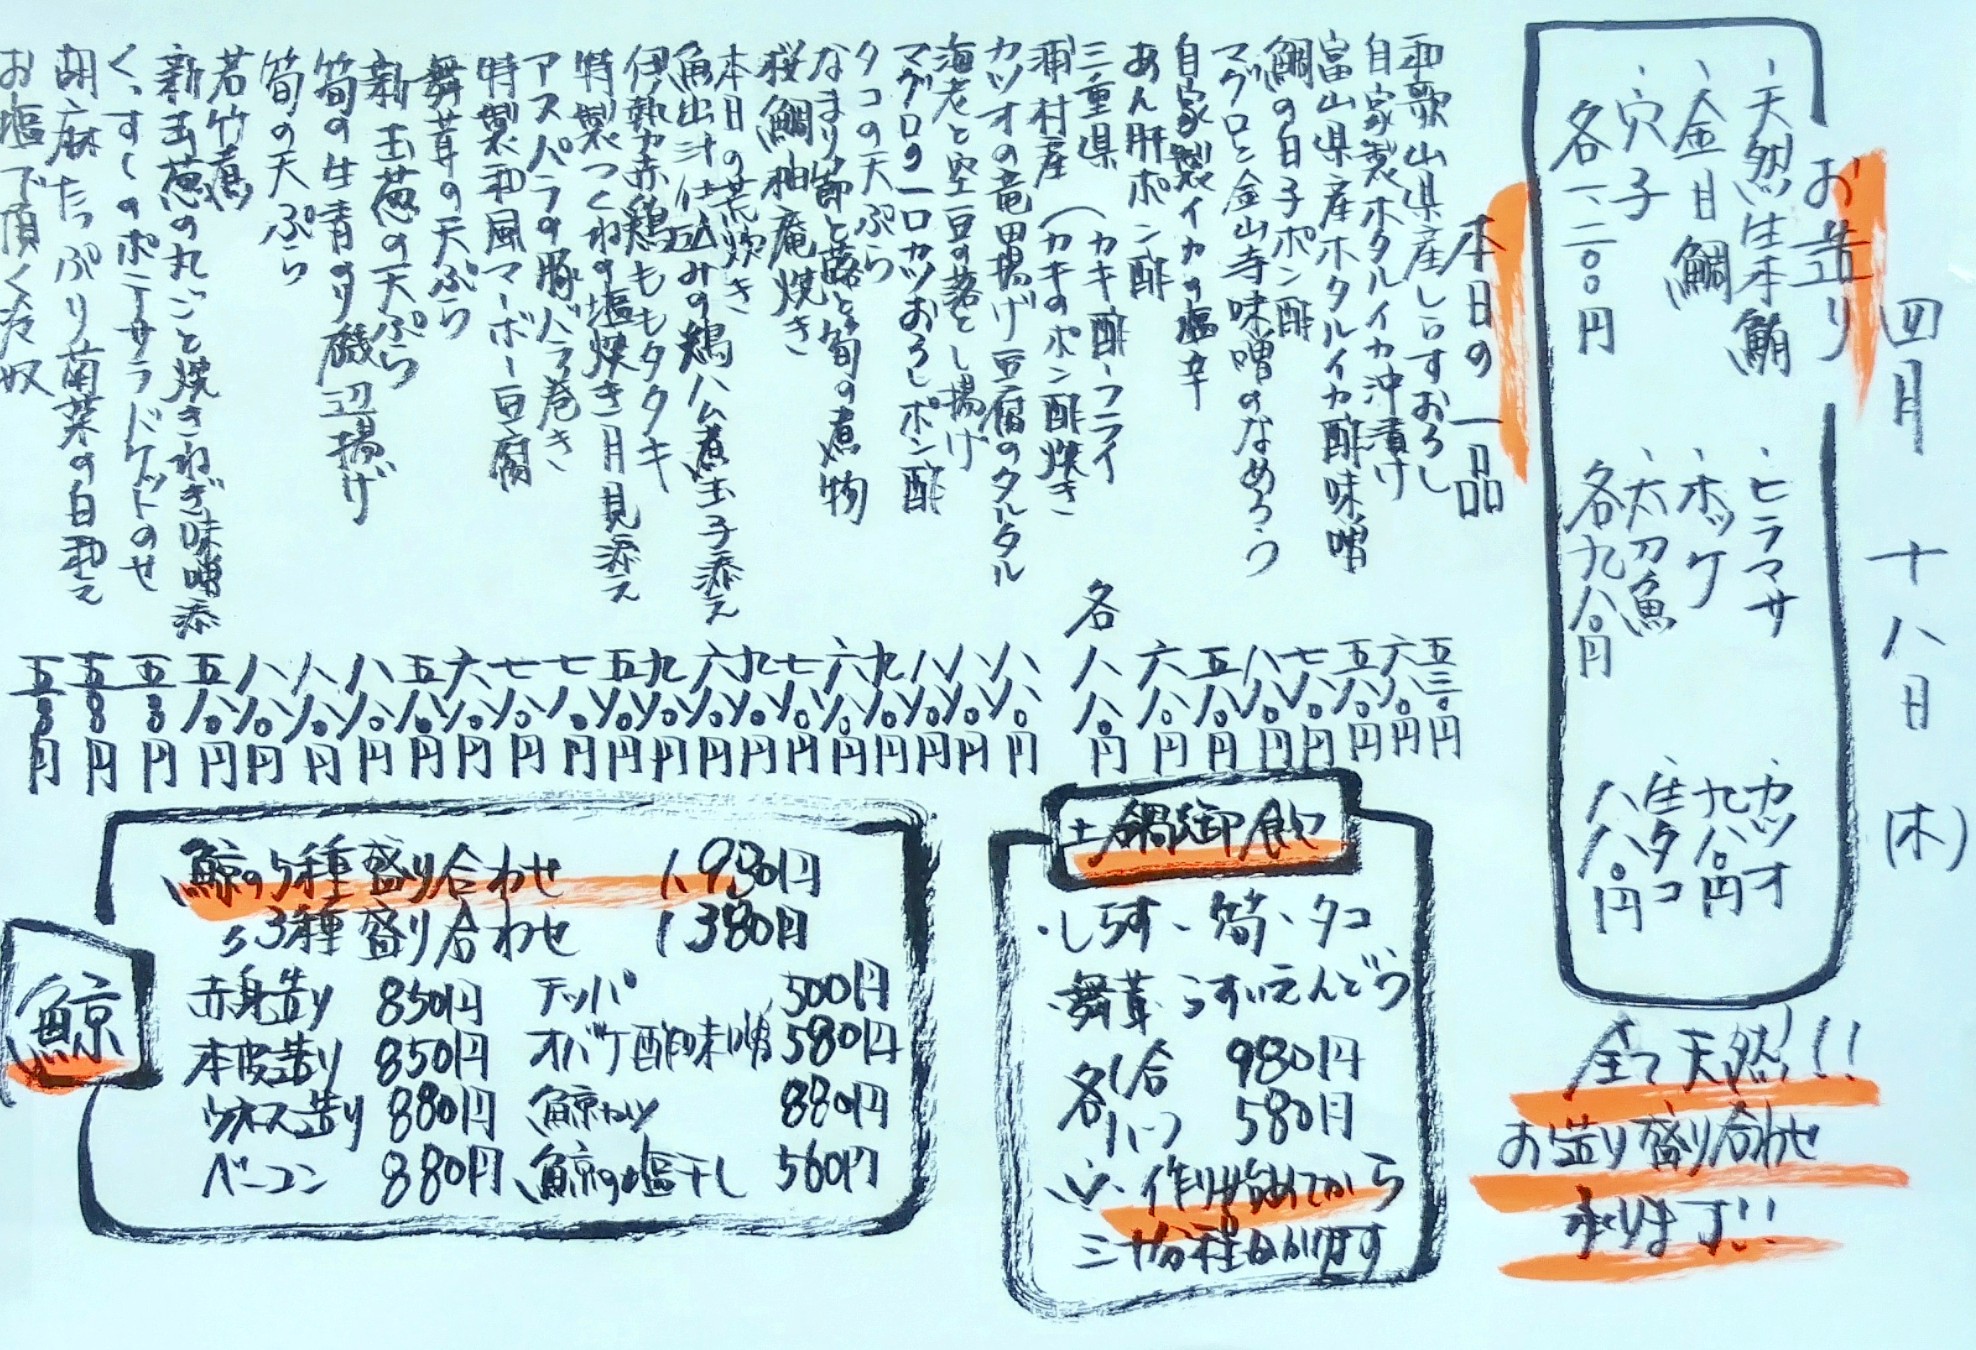 四月十八日(木)
お造り
・天然生本鮪
・金目鯛
・穴子
各一、二〇〇円
・ヒラマサ
・ホッケ
・太刀魚
各九八〇円
・カツオ
九八〇円
・生タコ
八八〇円
全て天然!!!
お造り盛り合わせ
承ります!!
本日の一品
和歌山県産しらすおろし 五三〇円
自家製ホタルイカ沖漬け 六八〇円
富山県産ホタルイカ酢味噌 五八〇円
鯛の白子ポン酢 七八〇円
マグロと金山寺味噌のなめろう 八八〇円
自家製イカの塩辛 五八〇円
あん肝ポン酢 六八〇円
三重県
浦村産(カキ酢・フライ
カキのポン酢焼き 各八八〇円
カツオの竜田揚げ豆腐のタルタル 八八〇円
海老と空豆の落とし揚げ 八八〇円
マグロの一口カツおろしポン酢 八八〇円
タコの天ぷら 九八〇円
なまり節と蕗と筍の煮物 六八〇円
桜鯛柚庵焼き 七八〇円
本日の荒炊き 九八〇円
魚出汁仕込みの鶏ハム煮玉子添え 六八〇円
伊勢赤鶏ももタタキ 九八〇円
特製つくねの塩焼き月見添え 五八〇円
アスパラの豚バラ巻き 七八〇円
特製和風マーボー豆腐 七八〇円
舞茸の天ぷら 六八〇円
新玉葱の天ぷら 五八〇円
筍の生青のり磯辺揚げ 八八〇円
筍の天ぷら 八八〇円
若竹煮 八八〇円
新玉葱の丸ごと焼きねぎ味噌添 五八〇円
くんすしのポテサラドケットのせ 五八〇円
胡麻たっぷり菊菜の白和え 五八〇円
お塩で頂く冷奴 五八〇円
土鍋御飯
・しらす・筍・タコ
・舞茸・うすいえんどう
各1合 980円
各ハーフ 580円
※作り始めてから
三十分程かかります
鯨
鯨の5種盛り合わせ 1,980円
〃3種盛り合わせ 1,380円
赤身造り 850円
本皮造り 850円
ウネス造り 880円
ベーコン 880円
テッパ 500円
オバケ酢味噌 580円
鯨カツ 880円
鯨の塩干し 560円